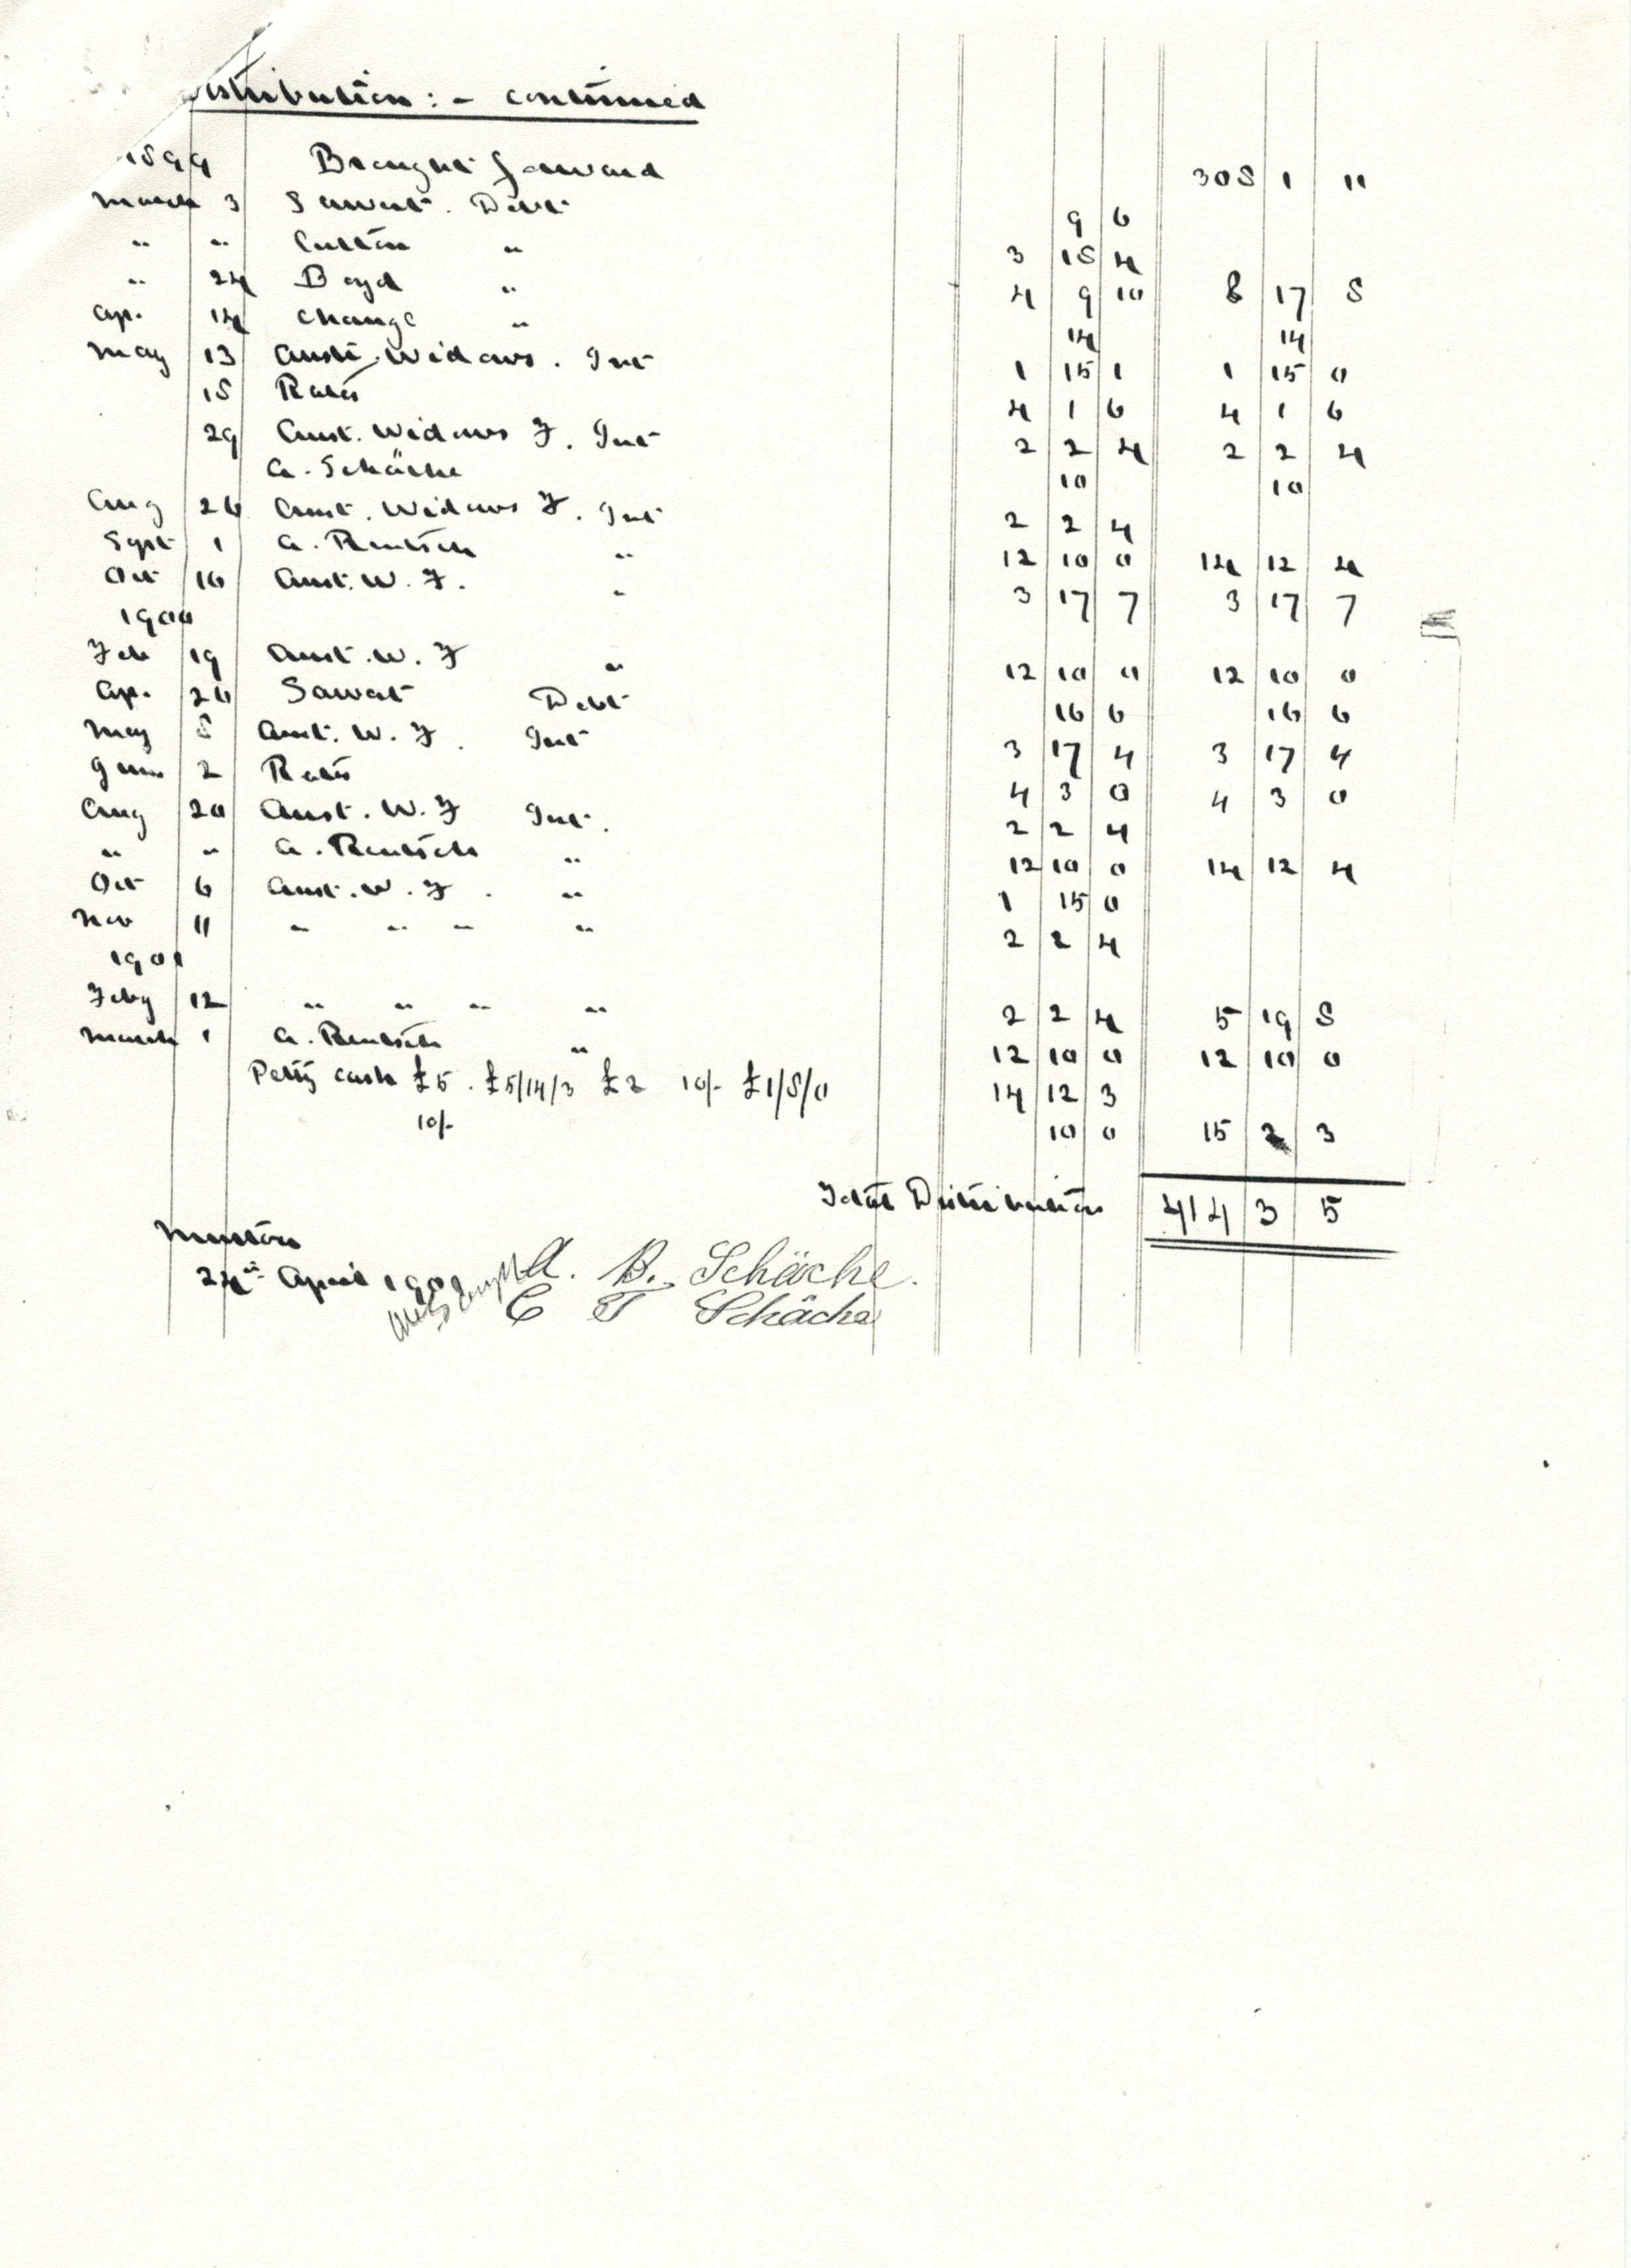 Distribution :- continued
1899 Brought forward 308 1 11
March 3 Sawat. Debt 9 6
" " Cutton " 3 18 4
" 24 Boyd " 4 9 10 8 17 8
Ap. 14 Change " 14 14
May 13 Aust. Widows. Int 1 15 1 1 15 0
18 Rates 4 1 6 4 1 6
29 Aust. Widows F. Int 2 2 4 2 2 4
A. Schäche 10 10
Aug 26 Aust. Widows F. Int 2 2 4
Sept 1 A. Rentsch " 12 10 0 14 12 4
Oct 16 Aust. W. F. " 3 17 7 3 17 7
1900
Feb 19 Aust. W. F " 12 10 0 12 10 0
Ap. 26 Sawat Debt 16 6 16 6
May 8 Aust. W. F. Int 3 17 4 3 17 4
June 2 Rates 4 3 0 4 3 0
Aug 20 Aust. W. F Int. 2 2 4
" " A. Rentsch " 12 10 0 14 12 4
Oct 6 Aust. W. F. " 1 15 0
Nov 11 " " " " 2 2 4
1901
Feby 12 " " " " 2 2 4 5 19 8
March 1 A. Rentsch " 12 10 0 12 10 0
Petty cash £5. £5/14/3 £2 10/- £1/8/0 14 12 3
10/- 10 0 15 2 3
Total Distribution 414 3 5
24th April 1901 A. B. Schäche.
C T Schäche